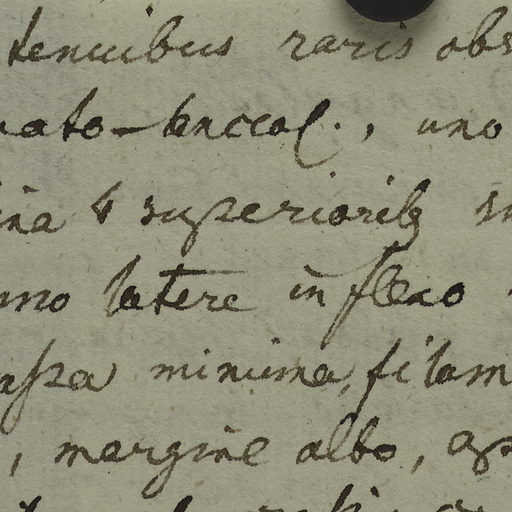 tenuibus raris obs
nato-lanceol., uno
ina 4 superiorib;
uno latere inflexo
minima, filam
, margine albo, ap